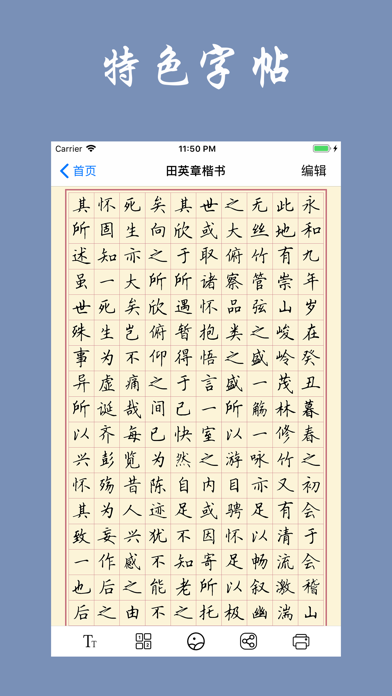 特色字帖
Carrier
11:50 PM
首页
田英章楷书
编辑
永和九年岁在癸丑暮春之初会于会稽山
此地有崇山峻岭茂林修竹又有清流激湍
无丝竹管弦之盛一觞一咏亦足以畅叙幽
之大俯察品类之盛所以游目骋怀足以极
世或取诸怀抱悟言一室之内或因寄所托
其欣于所遇暂得于己快然自足不知老之
矣向之所欣俯仰之间已为陈迹犹不能不
死生亦大矣岂不痛哉每览昔人兴感之由
怀固知一死生为虚诞齐彭殇为妄作后之
其所述虽世殊事异所以兴怀其致一也后
TT
1
2